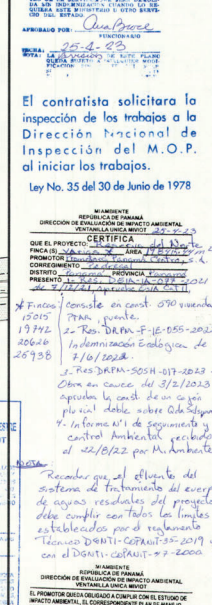 DA SIN INDEMNIZACION CUANDO LO RE-
QUIERA ESTE MINISTERIO U OTRO SERVI-
CIO DEL ESTADO.
APROBADO POR:
FUNCIONARIO
FECHA: 25-4-23
NOTA: LA DE ESTE PLANO
El contratista solicitara la
inspección de los trabajos a la
Dirección Nacional de
Inspección del M.O.P.
al iniciar los trabajos.
Ley No. 35 del 30 de Junio de 1978
MIAMBIENTE
REPÚBLICA DE PANAMÁ
DIRECCIÓN DE EVALUACIÓN DE IMPACTO AMBIENTAL
VENTANILLA UNICA MIVIOT 25-4-23
CERTIFICA
QUE EL PROYECTO: Reserva del Norte
FINCA (S) ÁREA
PROMOTOR Promotora Panamá Centro, S.A.
CORREGIMIENTO Pedregal
DISTRITO Panamá PROVINCIA Panamá
PRESENTÓ 1- Res. DEIA-IA-077-2021
de Aprueba EsIA Cat II
* Fincas
15015
19742
20626
26938
consiste en const. 690 viviendas
PTAR, puente.
2- Res. DRPM-F-IE-055-2022
Indemnización Ecológica de
7/6/2022.
3. Res. DRPM-SOSH-017-2023
Obra en cauce del 3/2/2023
aprueba la const. de un cajón
pluvial doble sobre Qda
4- Informe Nº1 de seguimiento y
control Ambiental recibido
el 22/8/22 por M. Ambiente
NOTA:
Recordar que el efluente del
sistema de tratamiento del cuerpo
de aguas residuales del proyecto
debe cumplir con todos los límites
establecidos por el reglamento
Técnico DGNTI-COPANIT-35-2019
con el DGNTI-COPANIT-47-2000.
MIAMBIENTE
REPÚBLICA DE PANAMÁ
DIRECCIÓN DE EVALUACIÓN DE IMPACTO AMBIENTAL
VENTANILLA UNICA MIVIOT
EL PROMOTOR QUEDA OBLIGADO A CUMPLIR CON EL ESTUDIO DE
IMPACTO AMBIENTAL, EL CORRESPONDIENTE PLAN DE MANEJO